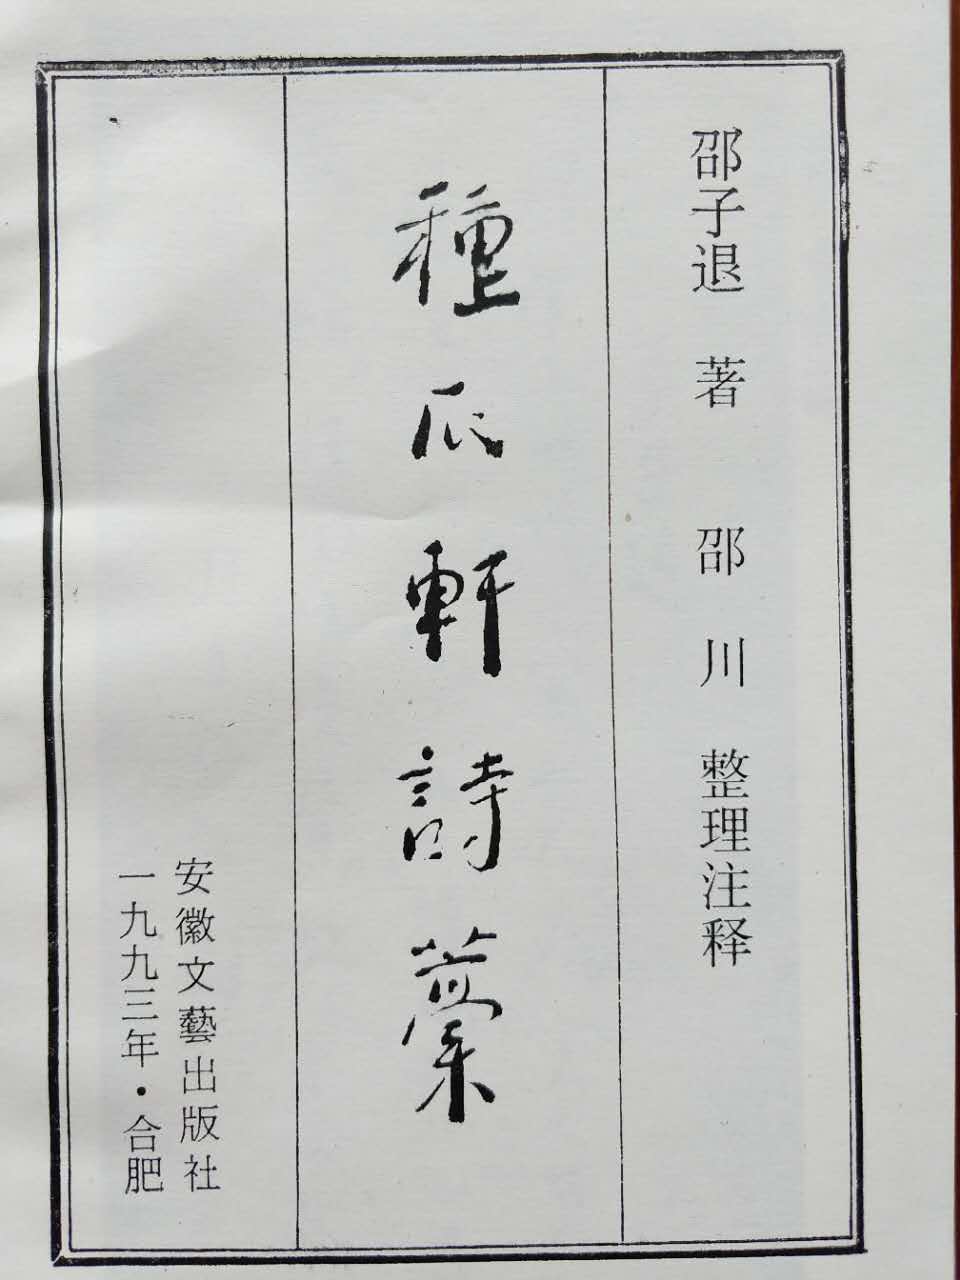 邵子退 著 邵川 整理注释
種瓜軒詩藁
安徽文藝出版社
一九九三年·合肥